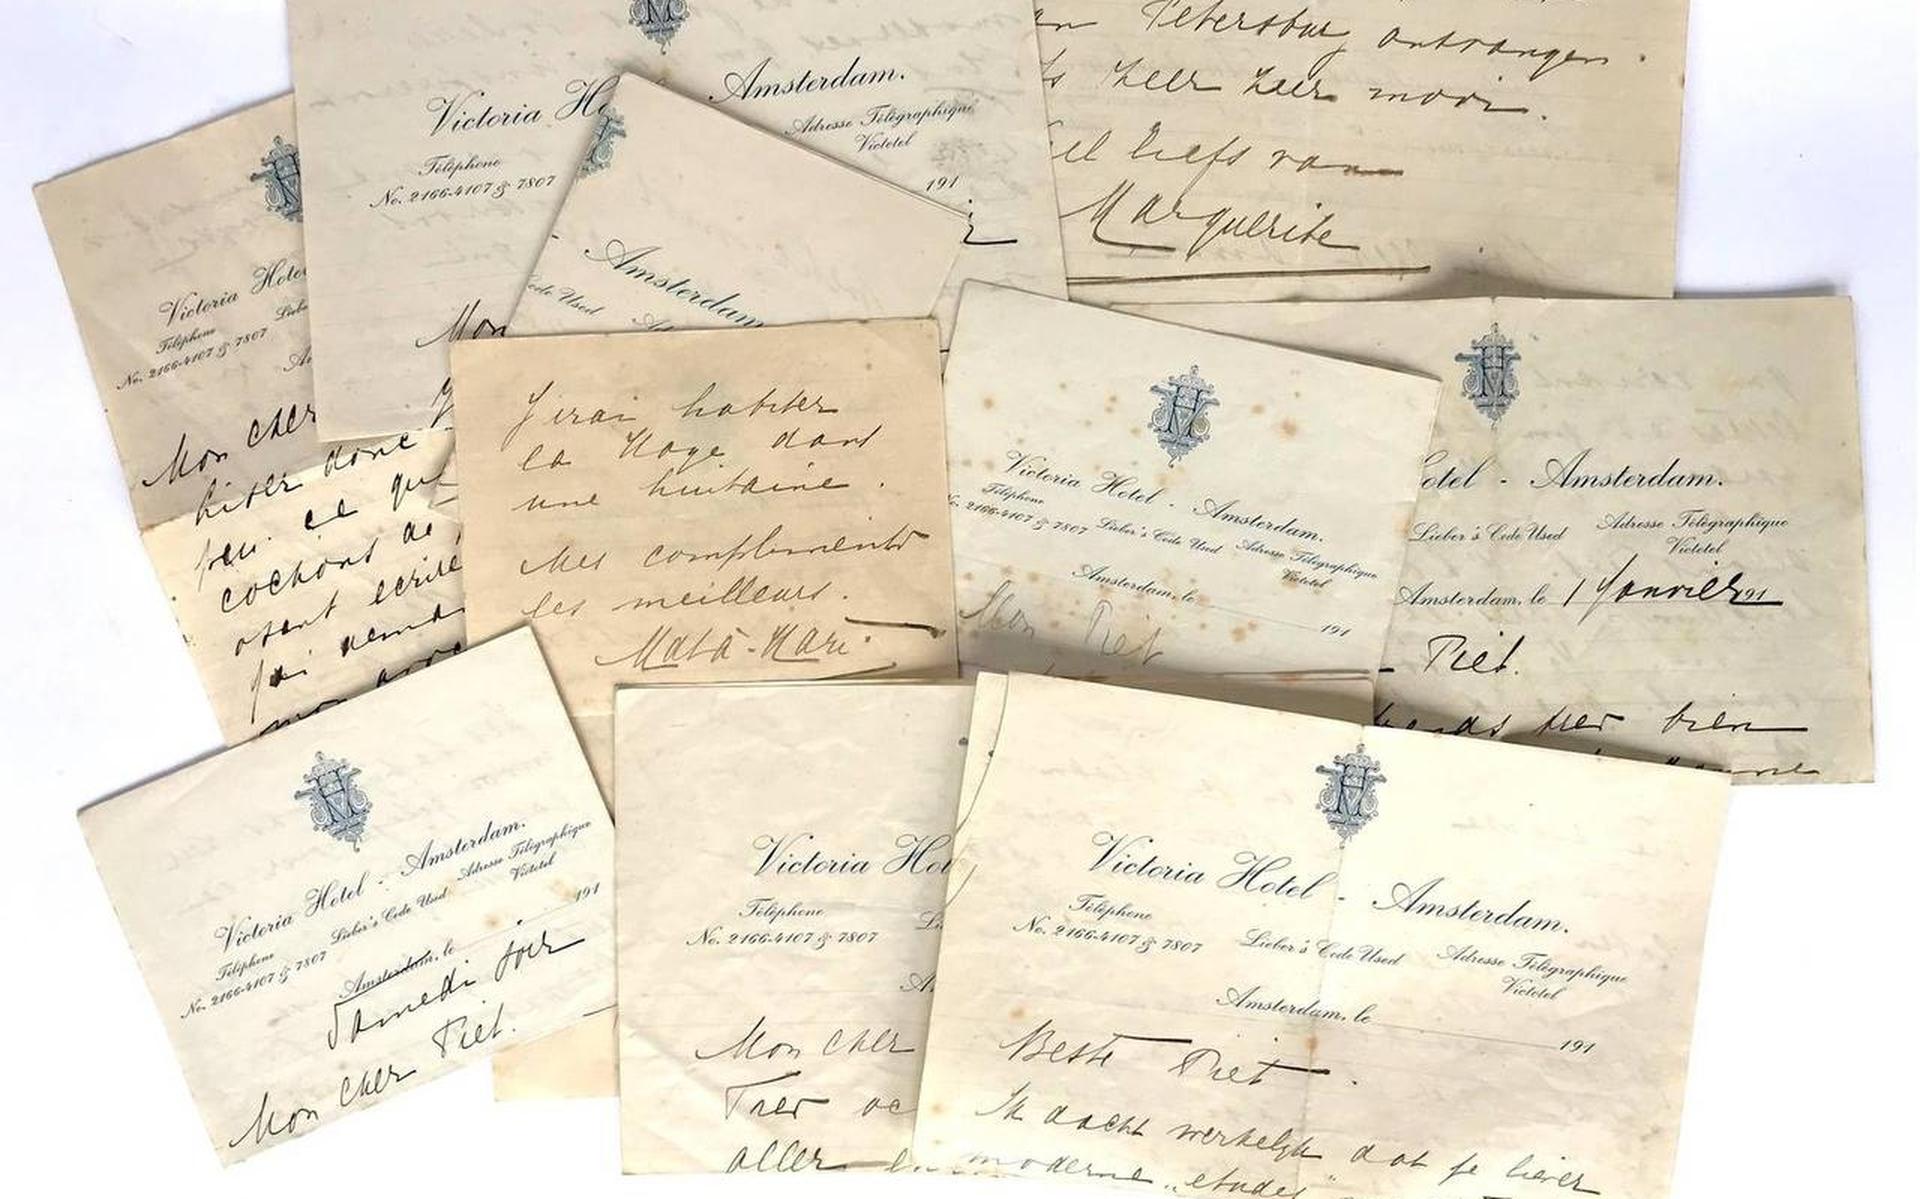 Petersburg ontvangen.
heel heel mooi.
liefs van
Marguerite
Victoria Ho
Amsterdam.
Téléphone
No. 2166-4107 & 7807
Adresse Télégraphique
Victotel
191
Mon
Victoria Hotel
Téléphone
No. 2166-4107 & 7807
Mon cher
donc
peu. ce qui
cochons de
osent écrire
j'ai
Amsterdam
Code Used
J'irai habiter
la Haye dans
une huitaine.
Mes compliments
les meilleurs.
Mata-Hari
Victoria Hotel - Amsterdam.
Téléphone
No. 2166-4107 & 7807 Lieber's Code Used Adresse Télégraphique
Victotel
Amsterdam, le 191
Mon Piet
otel - Amsterdam.
Lieber's Code Used Adresse Télégraphique
Victotel
Amsterdam, le 1 Janvier 191
Piet.
très bien
Victoria Hotel - Amsterdam.
Téléphone
No. 2166-4107 & 7807 Lieber's Code Used Adresse Télégraphique
Victotel
Amsterdam, le 191
Samedi soir
Mon cher Piet.
Victoria Hot
Téléphone
No. 2166-4107 & 7807
Mon cher
aller
Victoria Hotel - Amsterdam.
Téléphone
No. 2166-4107 & 7807 Lieber's Code Used Adresse Télégraphique
Victotel
Amsterdam, le 191
Beste Piet.
Ik dacht werkelijk dat je liever
moderne „etudes"